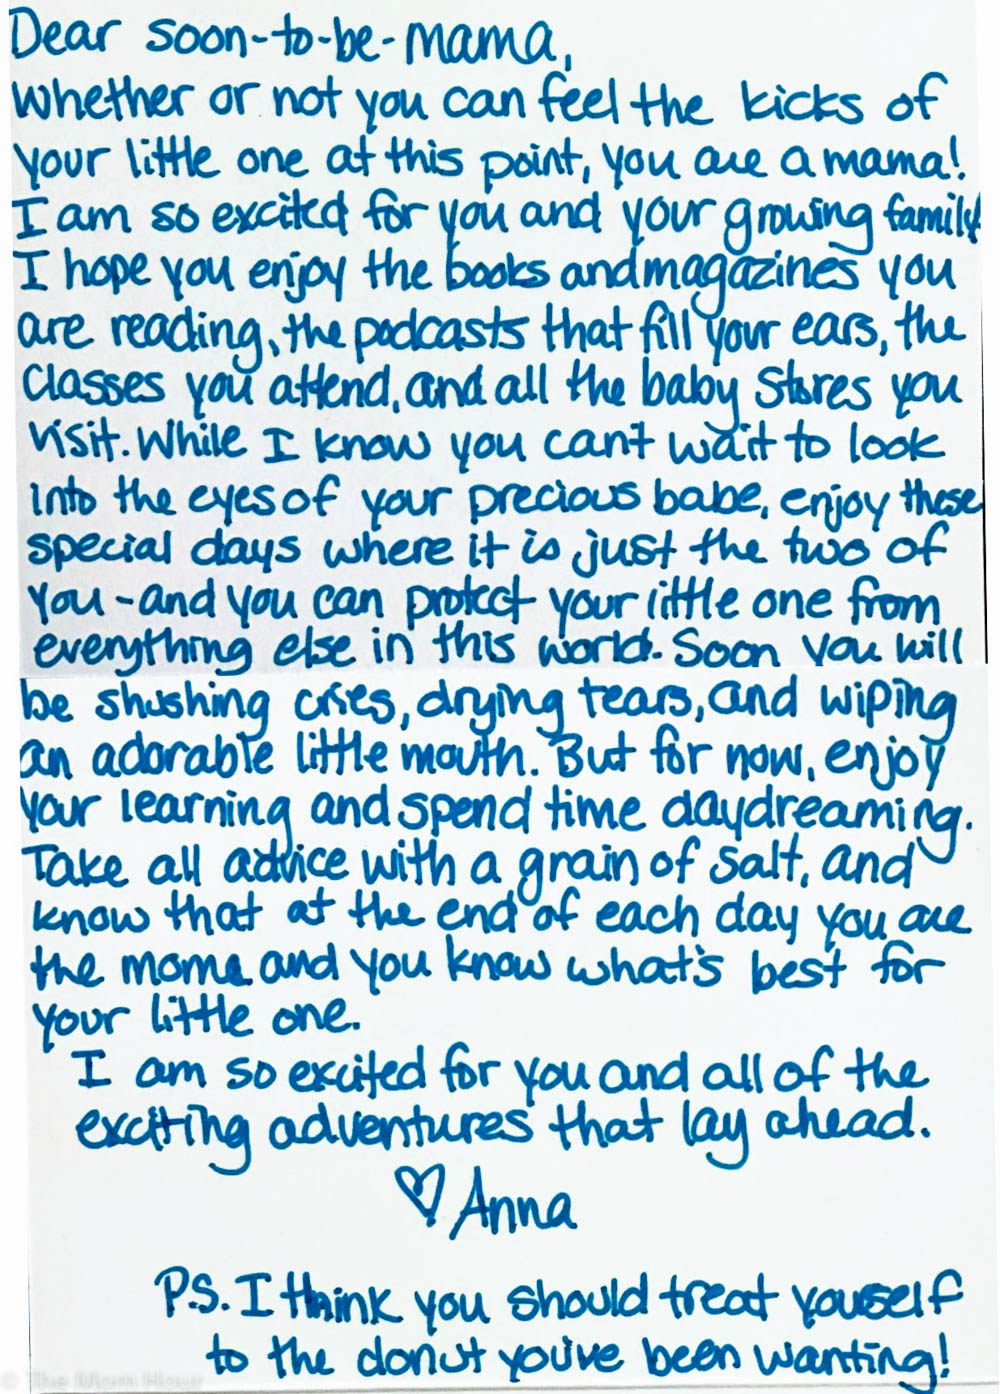 Dear soon-to-be-mama,
Whether or not you can feel the kicks of
your little one at this point, you are a mama!
I am so excited for you and your growing family!
I hope you enjoy the books and magazines you
are reading, the podcasts that fill your ears, the
classes you attend, and all the baby stores you
visit. While I know you can't wait to look
into the eyes of your precious babe, enjoy these
special days where it is just the two of
you - and you can protect your little one from
everything else in this world. Soon you will
be shushing cries, drying tears, and wiping
an adorable little mouth. But for now, enjoy
your learning and spend time daydreaming.
Take all advice with a grain of salt, and
know that at the end of each day you are
the moma and you know what's best for
your little one.
I am so excited for you and all of the
exciting adventures that lay ahead.
♡ Anna
P.S. I think you should treat youself
to the donut you've been wanting!
© The Mom Hour